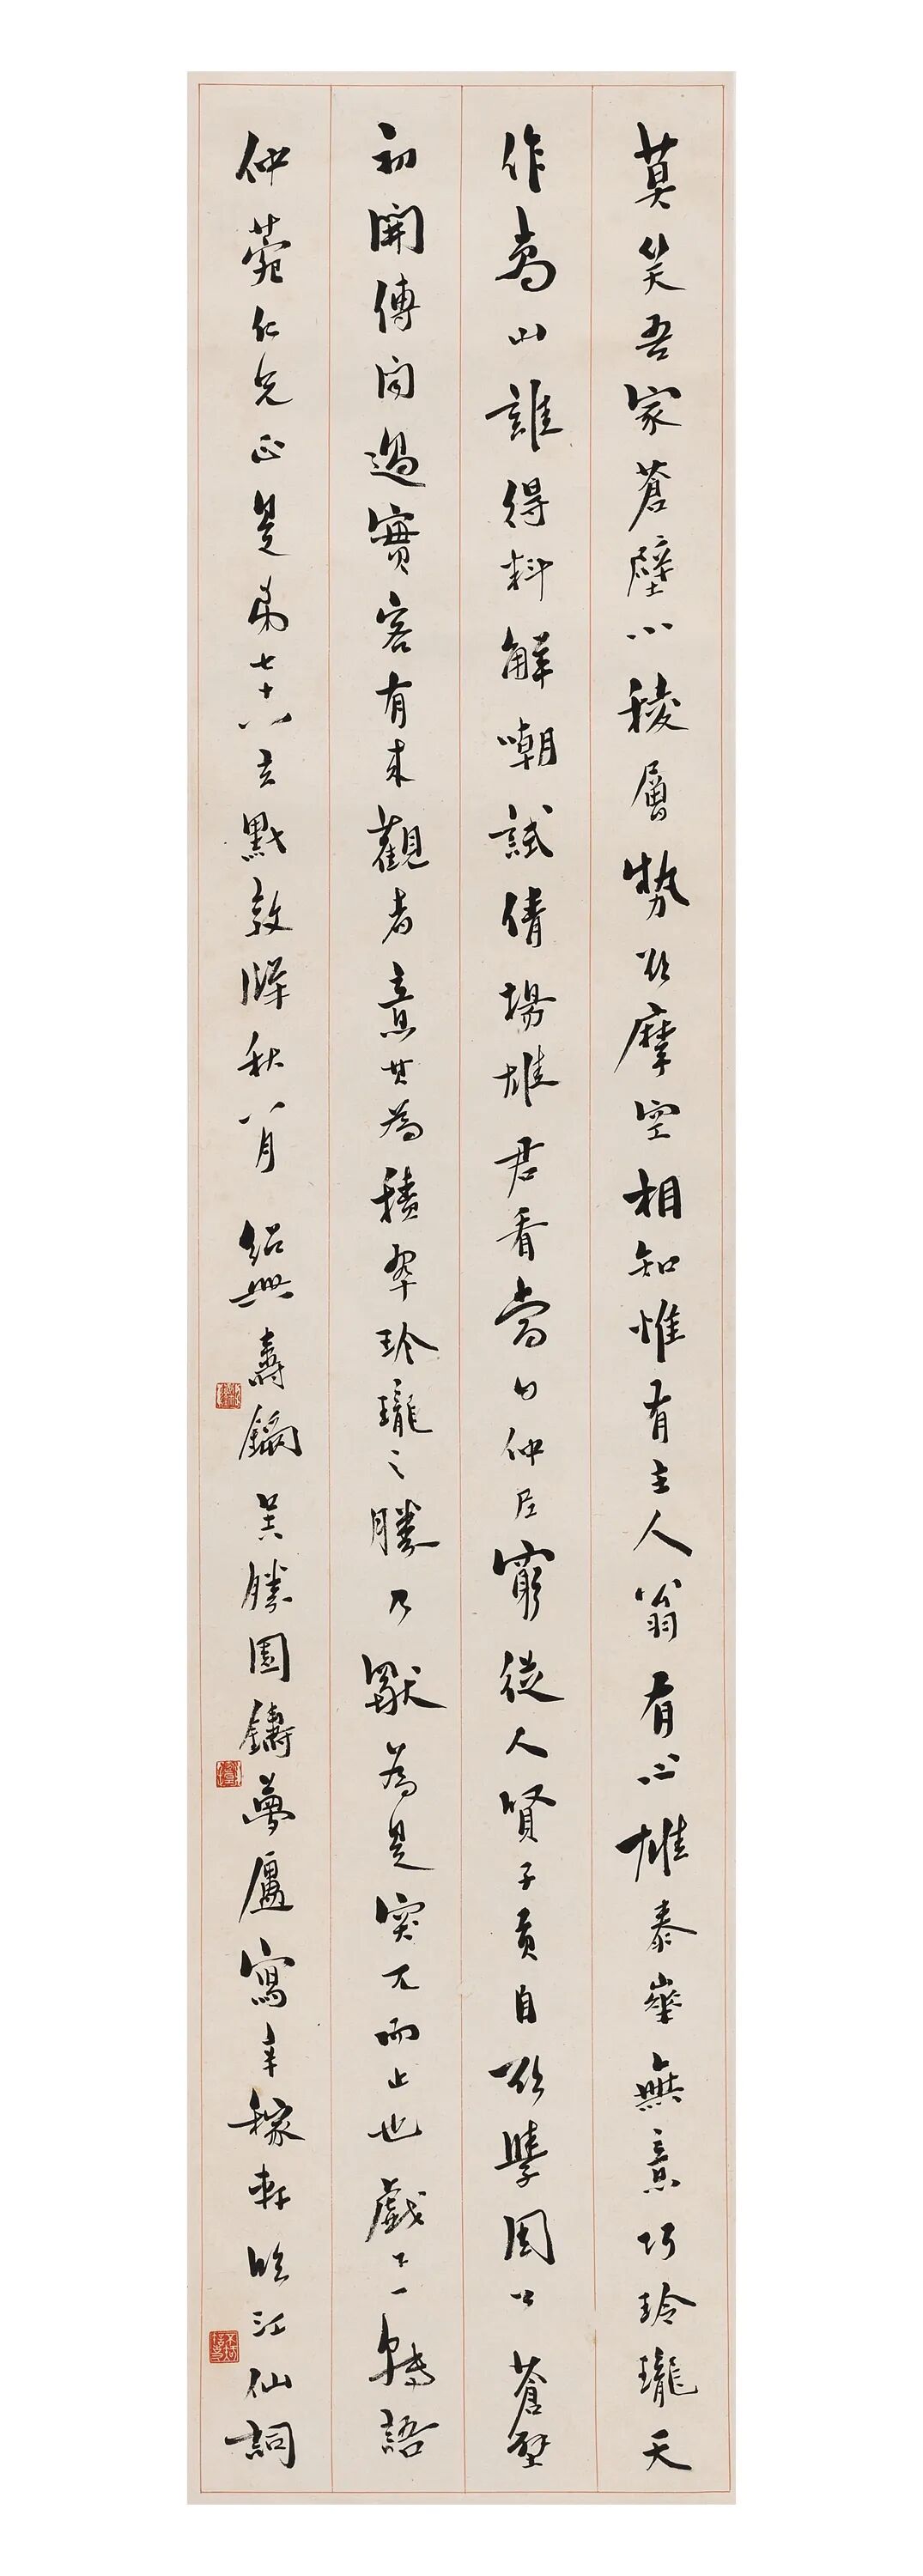 莫笑吾家蒼壁小稜層勢欲摩空相知惟有主人翁有心雄泰華無意巧玲瓏天
作高山誰得料解嘲試倩揚雄君看當日仲尼窮從人賢子貢自欲學周公蒼壁
初開傳聞過實客有來觀者意其為積翠玲瓏之勝乃獸為是突兀而止也戲下一轉語
仲苑仁兄正是弟七十八 敦牂秋八月 紹興壽鏑 吳勝園鑄夢廬寫辛稼軒臨江仙詞